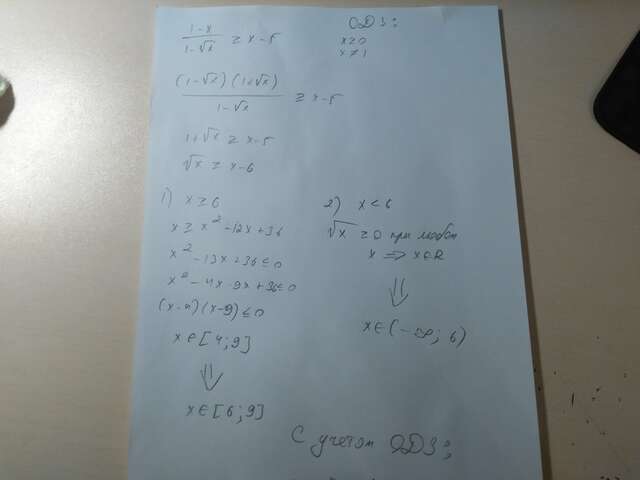 (1-x)/(1-√x) ≥ x-5
ОДЗ:
x≥0
x≠1
((1-√x)(1+√x))/(1-√x) ≥ x-5
1+√x ≥ x-5
√x ≥ x-6
1) x≥6
x ≥ x²-12x+36
x²-13x+36≤0
x²-4x-9x+36≤0
(x-4)(x-9)≤0
x∈[4;9]
⇓
x∈[6;9]
2) x<6
√x ≥0 при любом
x ⇒ x∈R
⇓
x∈(-∞; 6)
С учетом ОДЗ: